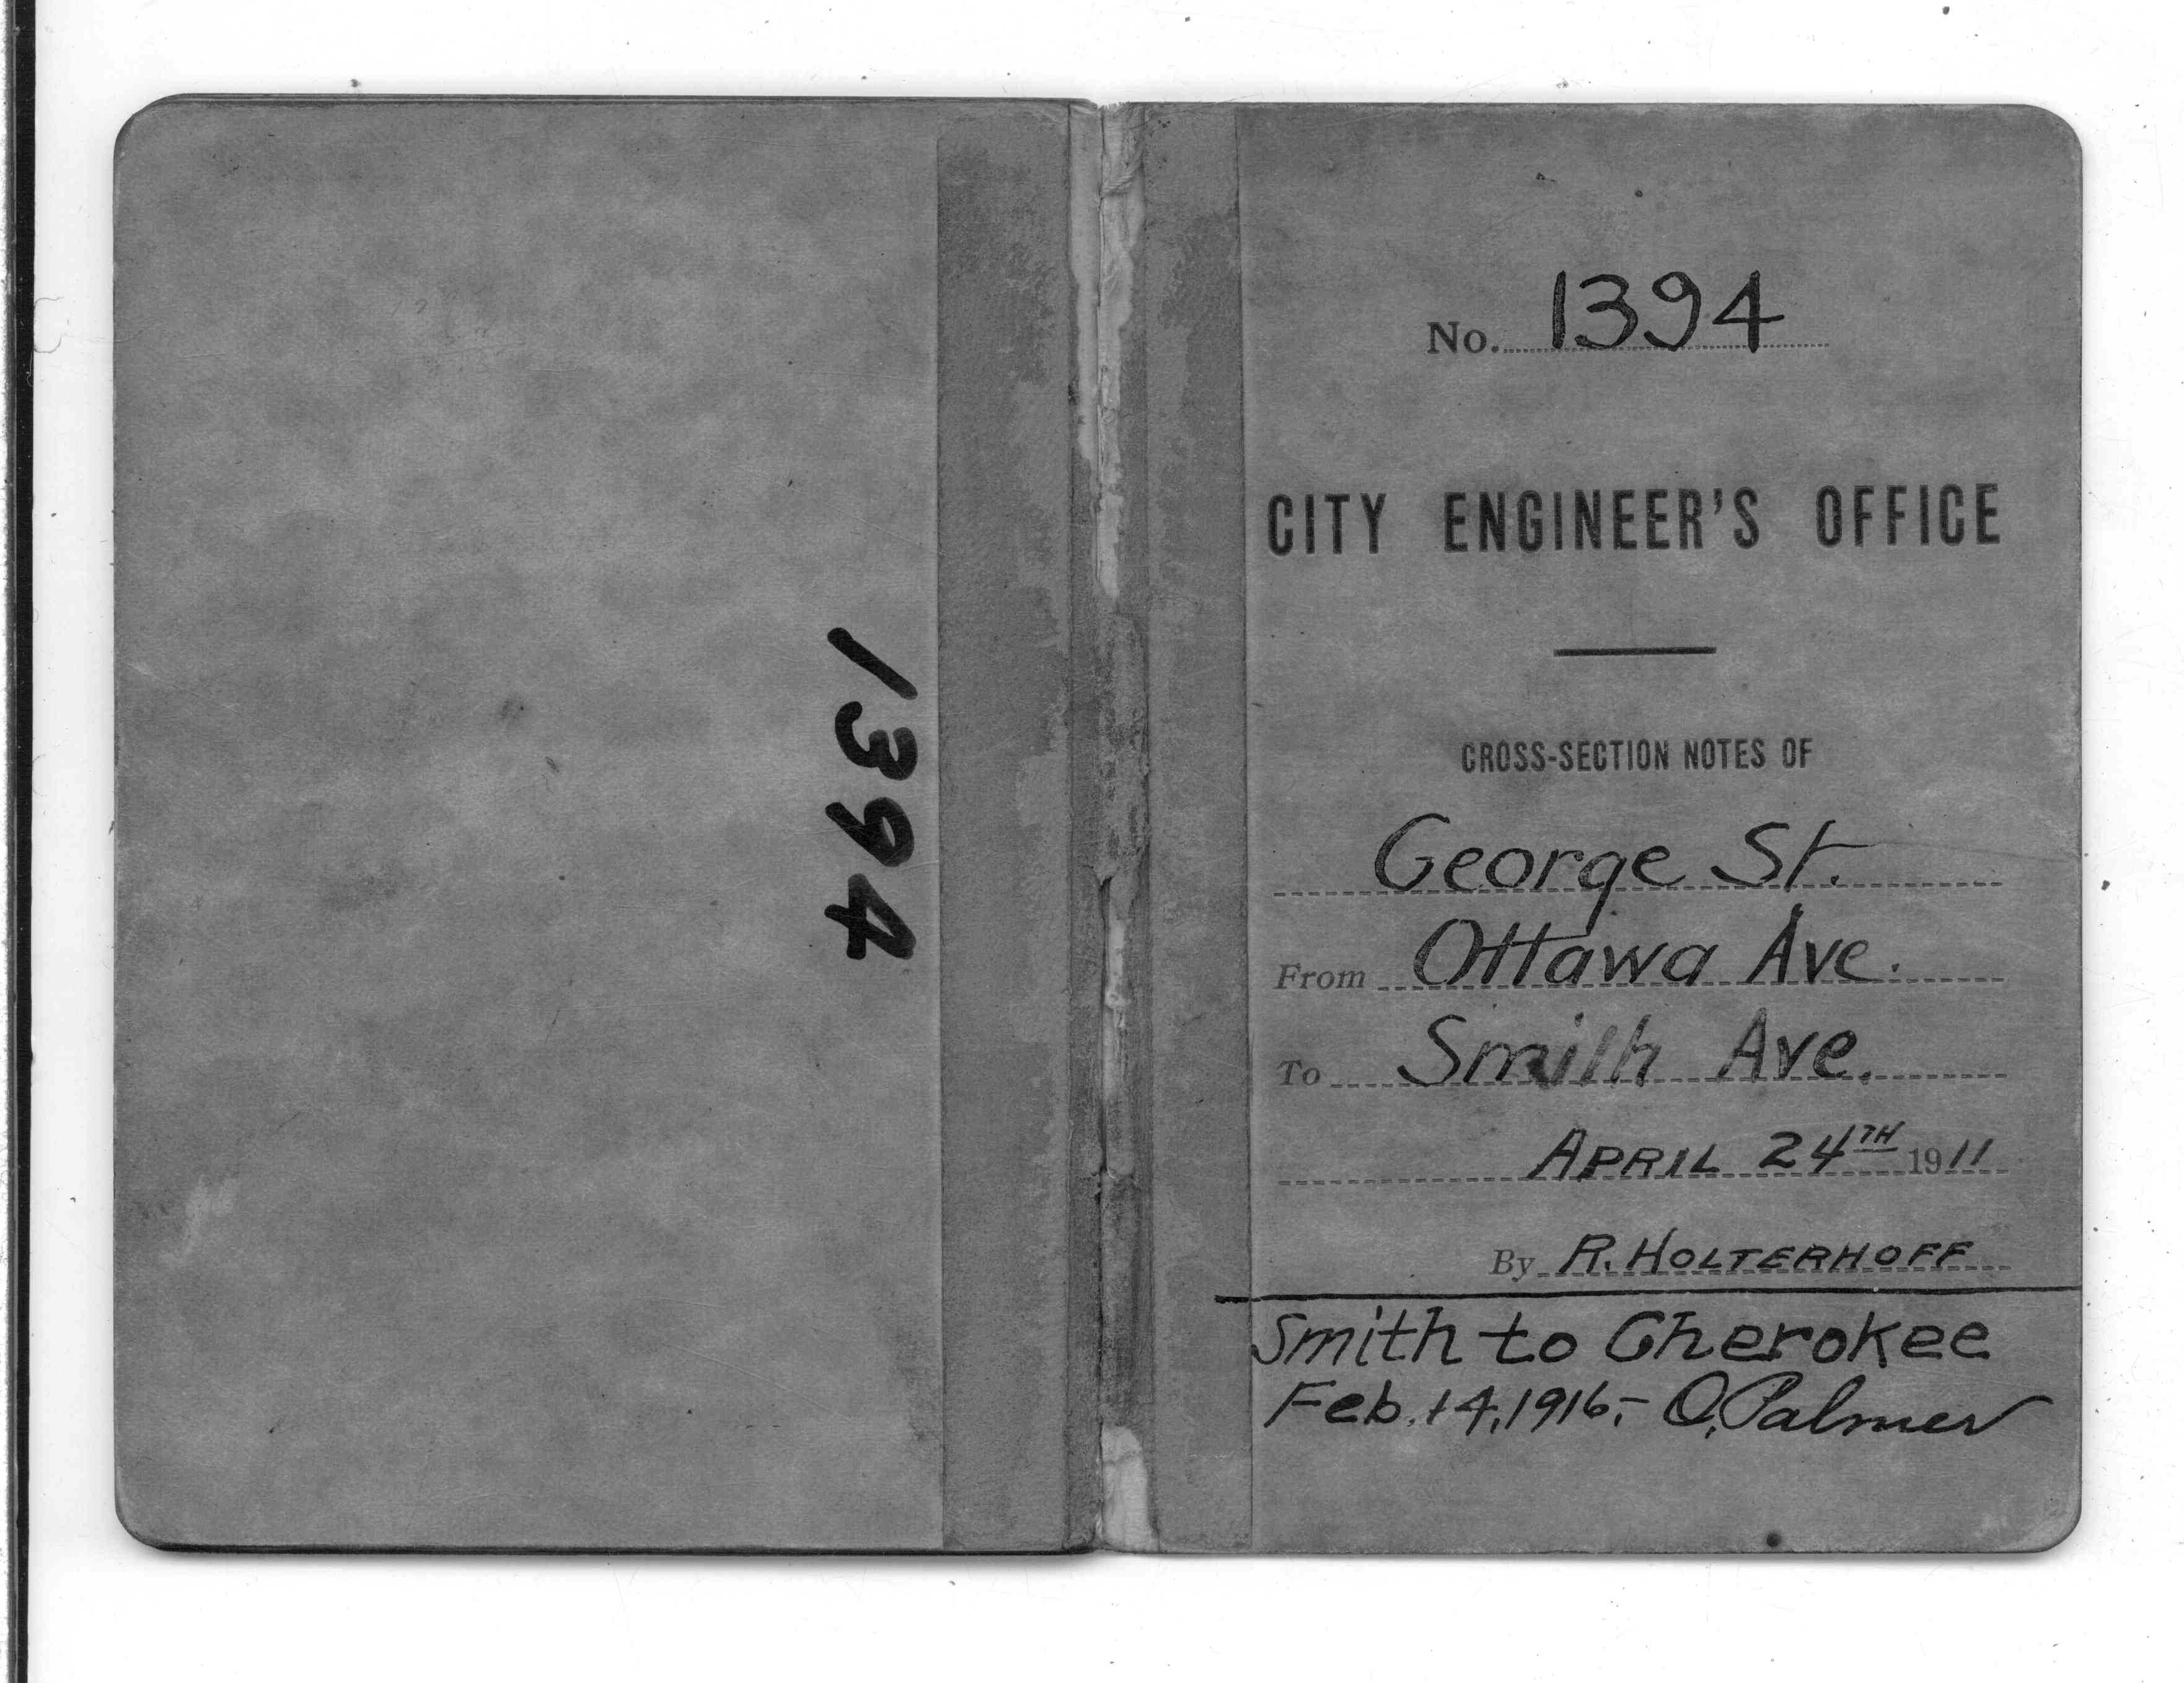 1394
No. 1394
CITY ENGINEER'S OFFICE
CROSS-SECTION NOTES OF
George St.
From Ottawa Ave.
To Smith Ave.
APRIL 24TH 1911
By R. HOLTERHOFF
Smith to Cherokee
Feb. 14, 1916,- O. Palmer